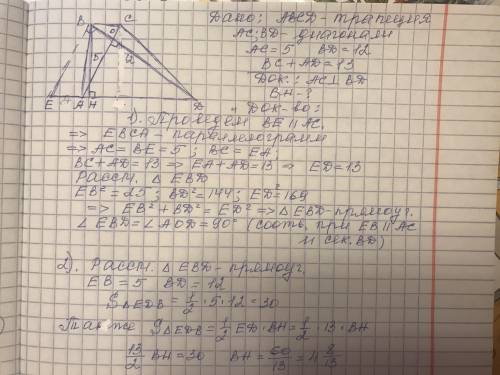 Дано: ABCD - трапеция
AC; BD - диагонали
AC = 5 BD = 12
BC + AD = 13
Док.: AC ⊥ BD
BH - ?
Док-во:
B C O 5 12 E A H D
1). Проведём BE || AC.
=> EBCA - параллелограмм
=> AC = BE = 5; BC = EA;
BC + AD = 13 => EA + AD = 13 => ED = 13
Рассм. △ EBD
EB² = 25; BD² = 144; ED² = 169
=> EB² + BD² = ED² => △ EBD - прямоуг.
∠ EBD = ∠ AOD = 90° (соотв. при EB || AC
и сек. BD)
2). Рассм. △ EBD - прямоуг.
EB = 5 BD = 12
S△EDB = 1/2 · 5 · 12 = 30
Так же S△EDB = 1/2 ED · BH = 1/2 · 13 · BH
13/2 BH = 30 BH = 60/13 = 4 8/13